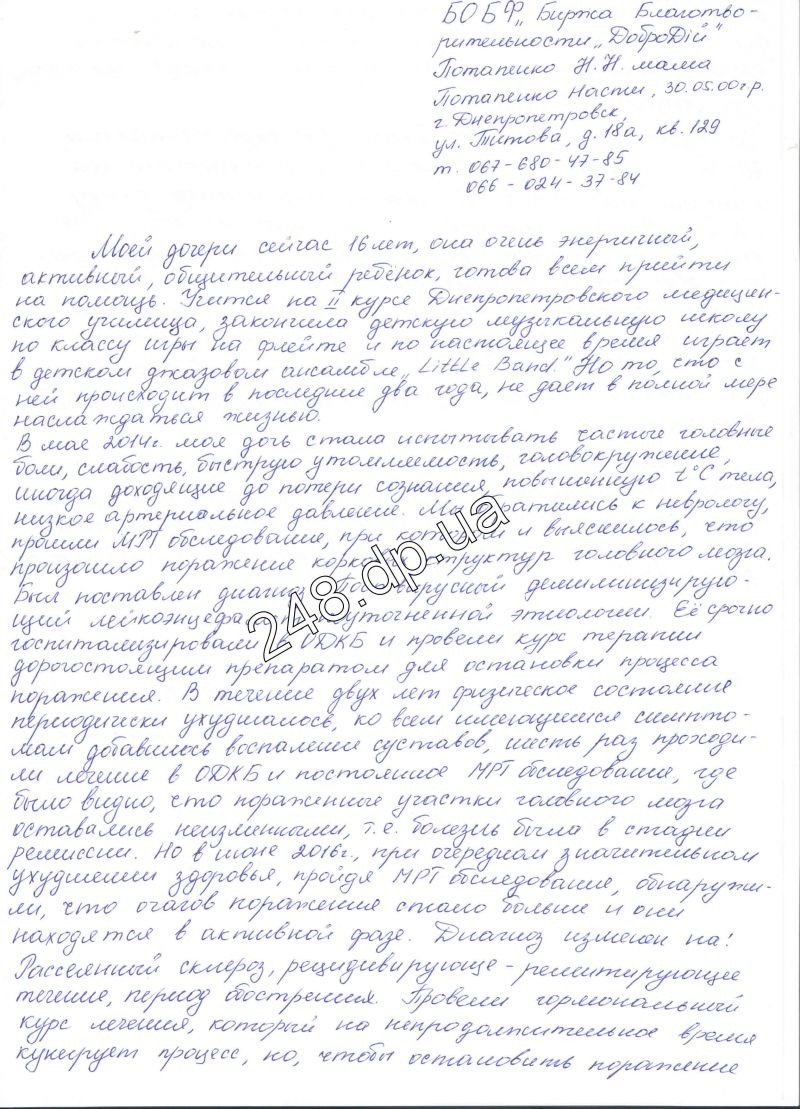 БО БФ „Биржа Благотво-
рительности „ДоброДій"
Потапенко Н.Н. мама
Потапенко Насти, 30.05.00г.р.
г. Днепропетровск,
ул. Титова, д. 18а, кв. 129
т. 067-680-47-85
066-024-37-84
Моей дочери сейчас 16 лет, она очень энергичный,
активный, общительный ребёнок, готова всем прийти
на помощь. Учится на II курсе Днепропетровского медицин-
ского училища, закончила детскую музыкальную школу
по классу игры на флейте и по настоящее время играет
в детском джазовом ансамбле „Little Band." Но то, что с
ней происходит в последние два года, не даёт в полной мере
наслаждаться жизнью.
В мае 2014г. моя дочь стала испытывать частые головные
боли, слабость, быструю утомляемость, головокружение,
иногда доходящие до потери сознания, повышенную t°C тела,
низкое артериальное давление. Мы обратились к неврологу,
прошли МРТ обследование, при котором и выяснилось, что
произошло поражение корковых структур головного мозга.
Был поставлен диагноз: Поствирусный демиелинизирую-
щий лейкоэнцефалит неуточненной этиологии. Её срочно
госпитализировали в ОДКБ и провели курс терапии
дорогостоящим препаратом для остановки процесса
поражения. В течение двух лет физическое состояние
периодически ухудшалось, ко всем имеющимся симпто-
мам добавилось воспаление суставов, шесть раз проходи-
ли лечение в ОДКБ и постоянное МРТ обследование, где
было видно, что поражённые участки головного мозга
оставались неизменными, т.е. болезнь была в стадии
ремиссии. Но в июне 2016г., при очередном значительном
ухудшении здоровья, пройдя МРТ обследование, обнаружи-
ли, что очагов поражения стало больше и они
находятся в активной фазе. Диагноз изменён на:
Рассеянный склероз, рецидивирующе-ремитирующее
течение, период обострения. Провели гормональный
курс лечения, который на непродолжительное время
купирует процесс, но, чтобы остановить поражение
248.dp.ua